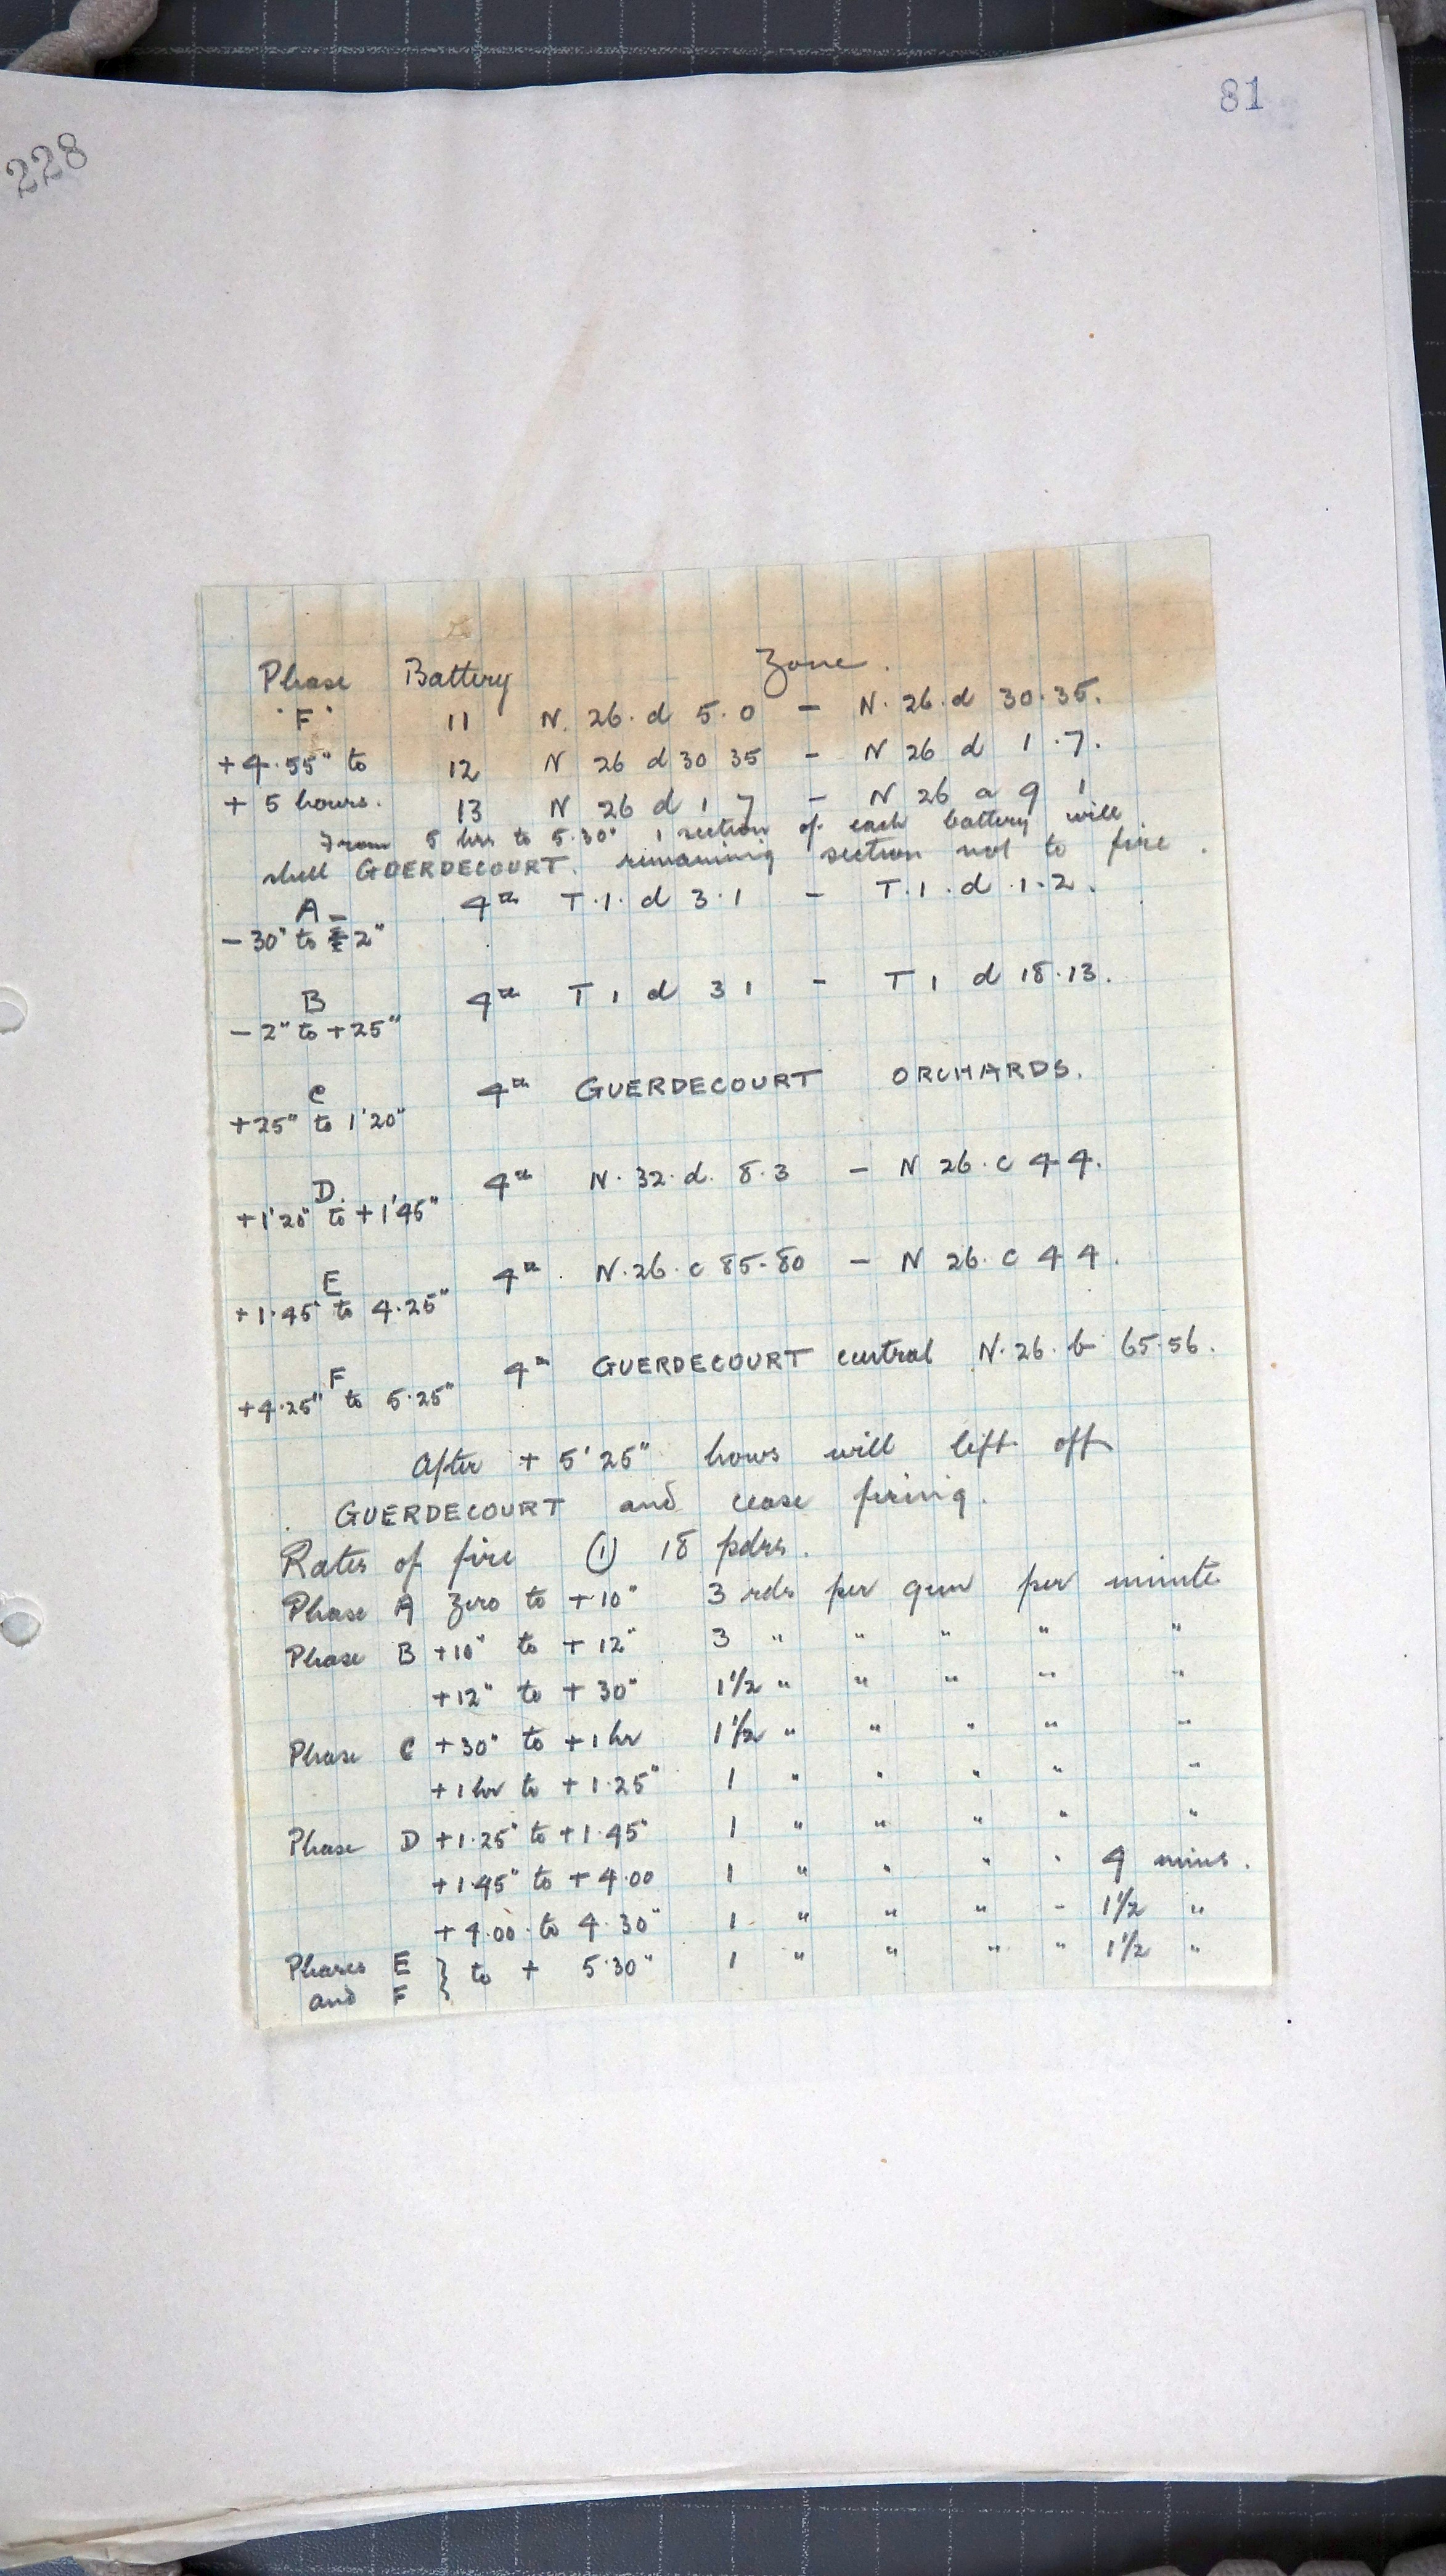 81
228
Phase Battery Zone.
"F" 11 N. 26. d 5.0 - N. 26. d 30.35.
+4.55" to 12 N 26 d 30 35 - N 26 d 1.7.
+ 5 hours. 13 N 26 d 1 7 - N 26 a 9 1
From 5 hrs to 5.30" 1 section of each battery will
shell GUERDECOURT. remaining section not to fire.
A - 4th T.1. d 3.1 - T.1. d 1.2.
- 30" to 2"
B 4th T 1 d 3 1 - T 1 d 18.13.
- 2" to +25"
C 4th GUERDECOURT ORCHARDS.
+25" to 1'20"
D. 4th N. 32. d. 8.3 - N 26. c 4 4.
+1'20" to +1'45"
E 4th. N. 26. c 85-80 - N 26. c 4 4.
+1.45 to 4.25"
F 4th GUERDECOURT central N. 26. b 65.56.
+4.25" to 5.25"
After + 5'25" hows will lift off
GUERDECOURT and cease firing.
Rates of fire (1) 18 pdrs.
Phase A Zero to +10" 3 rds per gun per minute
Phase B +10" to +12" 3 " " " " "
+12" to +30" 1½ " " " " "
Phase C +30" to +1hr 1½ " " " " "
+1hr to +1.25" 1 " " " " "
Phase D +1.25" to +1.45" 1 " " " " "
+1.45" to +4.00 1 " " " " 4 mins.
+4.00 to 4.30" 1 " " " " 1½ "
Phases E } to + 5.30" 1 " " " " 1½ "
and F }